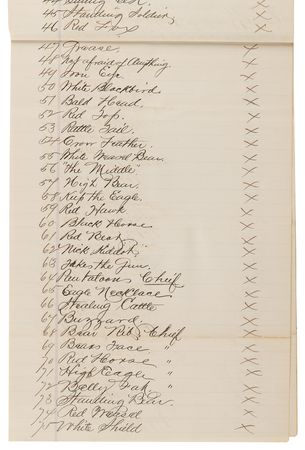 45 Standing Soldier, x
46 Red Fox x
47 x
48 Not afraid of Anything. x
49 Iron Eye x
50 White Blackbird x
51 Bald Head. x
52 Red Top. x
53 Rattle Tail. x
54 Crow Feather. x
55 White Weasel Bear. x
56 "The Middle" x
57 High Bear. x
58 Kiss the Eagle. x
59 Red Hawk x
60 Black Horse x
61 Red x
62 Nick x
63 Takes the Gun. x
64 Pantaloons Chief x
65 Eagle Necklace x
66 Stealing Cattle x
67 Buzzard. x
68 Bear Rib, Chief x
69 Face " x
70 Red Horse " x
71 High Eagle " x
72 Belly x
73 Standing Bear. x
74 Red Weasel x
75 White Shield x